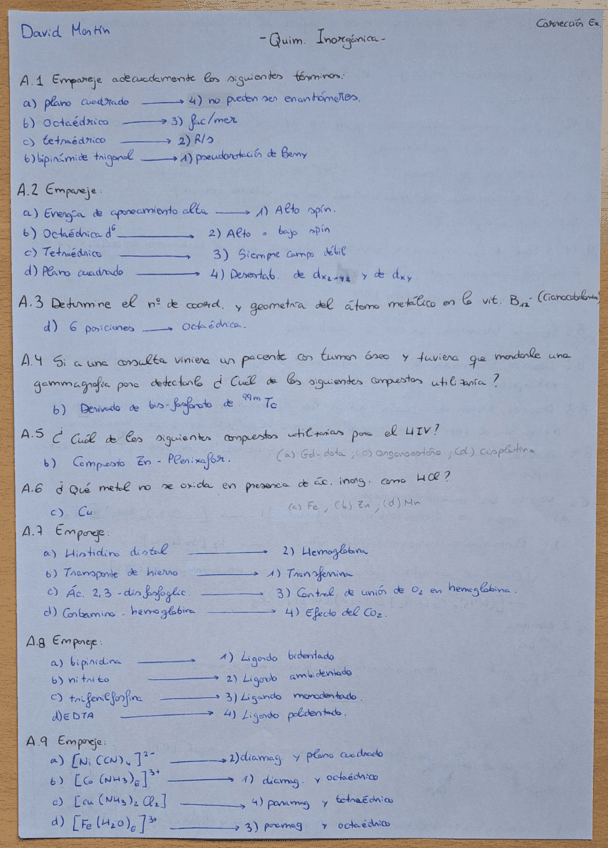 David Martín
Corrección Ex.
- Quím. Inorgánica -
A.1 Empareje adecuadamente los siguientes términos:
a) plano cuadrado → 4) no pueden ser enantiómeros.
b) Octaédrico → 3) fac/mer
c) tetraédrico → 2) R/S
b) bipirámide trigonal → 1) pseudorotación de Berry
A.2 Empareje:
a) Energía de apareamiento alta → 1) Alto spin.
b) Octaédrica d⁶ → 2) Alto o bajo spin
c) Tetraédrico → 3) Siempre campo débil
d) Plano cuadrado → 4) Desestab. de dx²-y² y de dxy
A.3 Determine el nº de coord. y geometría del átomo metálico en la vit. B₁₂ (Cianocobalamina)
d) 6 posiciones → Octaédrica.
A.4 Si a una consulta viniera un paciente con tumor óseo y tuviera que mandarle una
gammagrafía para detectarlo ¿Cuál de los siguientes compuestos utilizaría?
b) Derivado de bis-fosfonato de ⁹⁹ᵐTc
A.5 ¿Cuál de los siguientes compuestos utilizarías para el HIV?
b) Compuesto Zn - Plerixafor. (a) Gd-dota, (c) organoestaño, (d) cisplatino
A.6 ¿Qué metal no se oxida en presencia de ác. inorg. como HCl?
c) Cu (a) Fe, (b) Zn, (d) Mn
A.7 Empareje:
a) Histidina distal → 2) Hemoglobina
b) Transporte de hierro → 1) Transferrina
c) Ác. 2,3-disfosfoglic → 3) Control de unión de O₂ en hemoglobina.
d) Carbamino-hemoglobina → 4) Efecto del CO₂.
A.8 Empareje:
a) bipiridina → 1) Ligando bidentado
b) nitrito → 2) Ligando ambidentado
c) trifenilfosfina → 3) Ligando monodentado.
d) EDTA → 4) Ligando polidentado.
A.9 Empareje:
a) [Ni(CN)₄]²⁻ → 2) diamag y plano cuadrado
b) [Co(NH3)₆]³⁺ → 1) diamag. y octaédrico
c) [Cu(NH3)₂Cl₂] → 4) paramag y tetraédrico
d) [Fe(H₂O)₆]³⁺ → 3) paramag y octaédrico